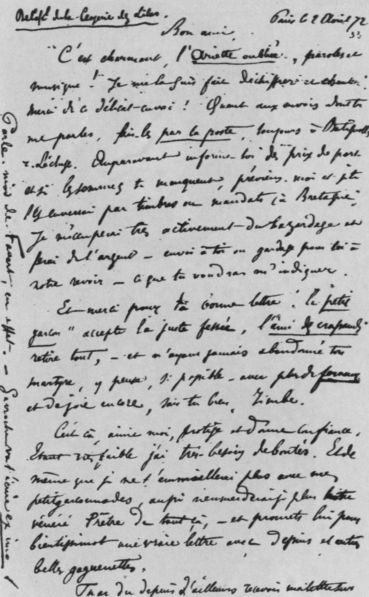 De la Closerie des Lilas.
Paris le 2 Avril 72
Bon ami,
"C'est charmant, l'Ariette oubliée, paroles et
musique ! Je me la suis fait déchiffrer et chanter !
merci de ce délicat envoi ! Quant aux envois dont tu
me parles, fais-les par la poste, toujours à Batignolles
r. Lécluse. Auparavant informe-toi des prix de port
et si les sommes te manquent, préviens-moi et je te
les enverrai par timbres ou mandats (à Bretagne)
Je m'occuperai très activement du bazardage et
ferai de l'argent – envoi à toi ou gardage pour toi à
notre revoir – ce que tu voudras m'indiquer.
Et merci pour ta bonne lettre. Le "petit
garçon" accepte la juste fessée, l'"ami des crapauds"
retire tout, – et n'ayant jamais abandonné ton
martyre, y pense, si possible – avec plus de ferveur
et de joie encore, sais-tu bien, Rimbe.
C'est ça, aime-moi, protège et donne confiance.
Étant très faible j'ai très besoin de bontés. Et de
même que je ne t'emmiellerai plus avec mes
petitgarçonnades, aussi n'emmerderai-je plus notre
vénéré Prêtre de tout ça, – et promets-lui pour
bientissimot une vraie lettre avec dessins et autres
belles goguenettes.
Tu as dû depuis d'ailleurs recevoir ma lettre sur